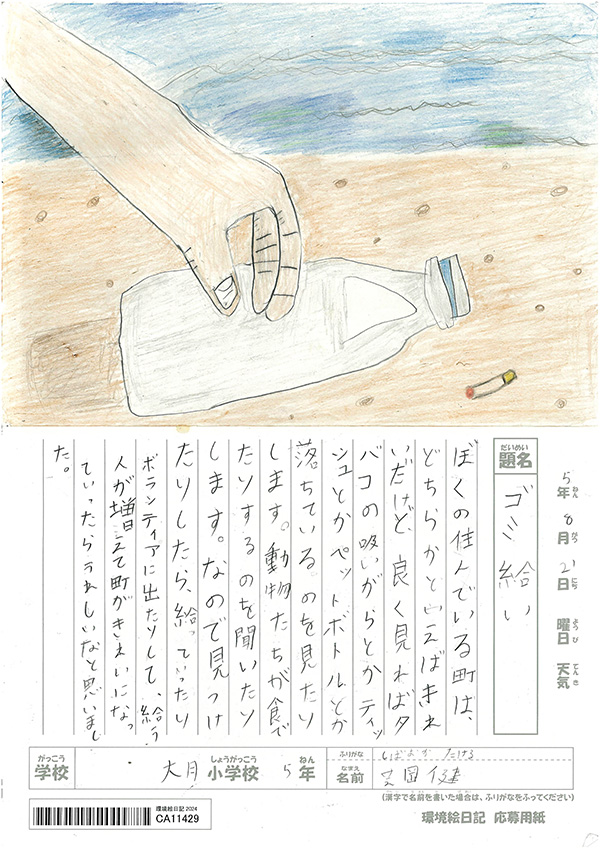 5年 8月 21日 曜日 天気
ねん がつ にち ようび てんき
だいめい
題名 ゴミ給い
ぼくの住んでいる町は、
どちらかといえばきれ
いだけど、良く見ればタ
バコの吸いがらとかティッ
シュとかペットボトルとか
落ちているのを見たり
します。動物たちが食べ
たりするのを聞いたり
します。なので見つけ
たりしたら、給っていったり
ボランティアに出たりして、給う
人が増えて町がきれいになっ
ていったらうれしいなと思いまし
た。
がっこう しょうがっこう ねん
学校 大月 小学校 5年
ふりがな しばおか たける
なまえ
名前 芝岡健
(漢字で名前を書いた場合は、ふりがなをふってください)
環境絵日記 2024
CA11429
環境絵日記 応募用紙